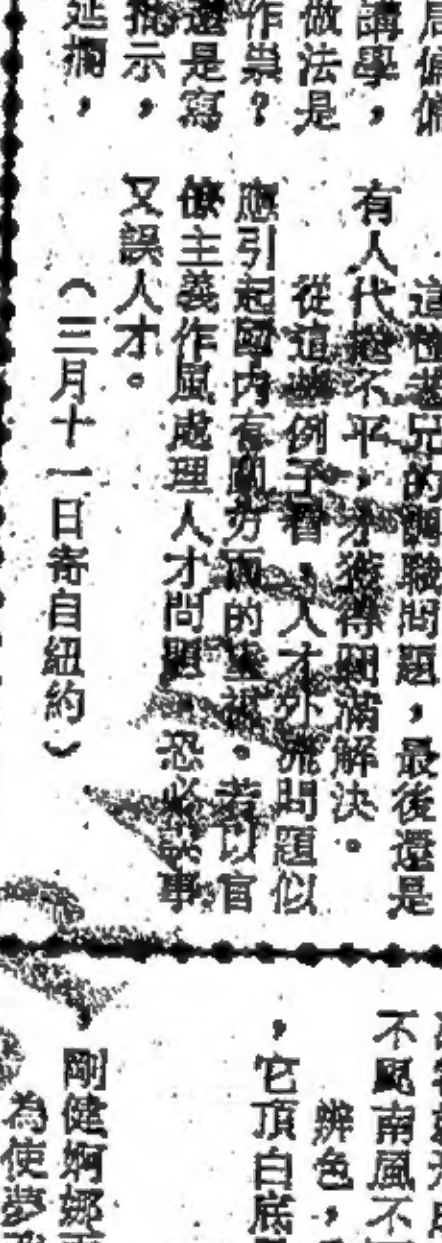 居偏偏
講學，
做法是
作祟？
還是寫
批示，
延擱，
這位老兄的調職問題，最後還是
有人代抱不平，才獲得圓滿解決。
從這些例子看，人才外流問題似
應引起國內有關方面的重視。若以官
僚主義作風處理人才問題，恐必誤事
又誤人才。
（三月十一日寄自紐約）
不颳南風不
辨色，
，它頂白底
，剛健婀娜
為使夢